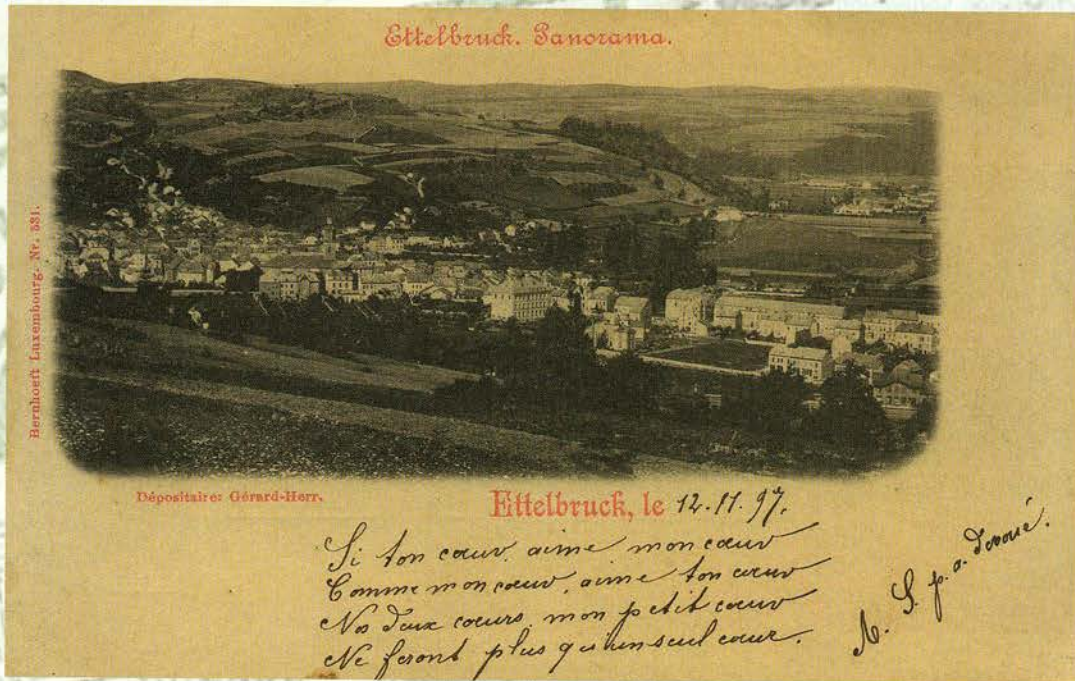 Ettelbruck. Panorama.
Bernhoeft Luxembourg. Nr. 331.
Dépositaire: Gérard-Herr.
Ettelbruck, le 12.11.97.
Si ton cœur aime mon cœur
Comme mon cœur aime ton cœur
Nos deux cœurs, mon petit cœur
Ne feront plus qu'un seul cœur.
S. p. a. dévoué.